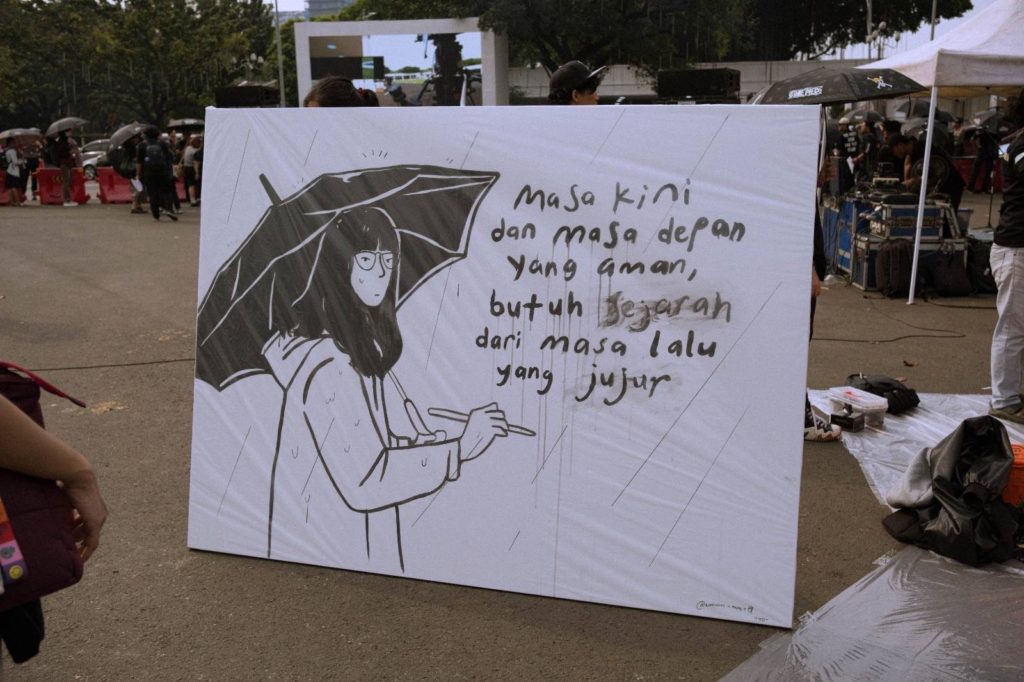 masa kini
dan masa depan
yang aman,
butuh sejarah
dari masa lalu
yang jujur